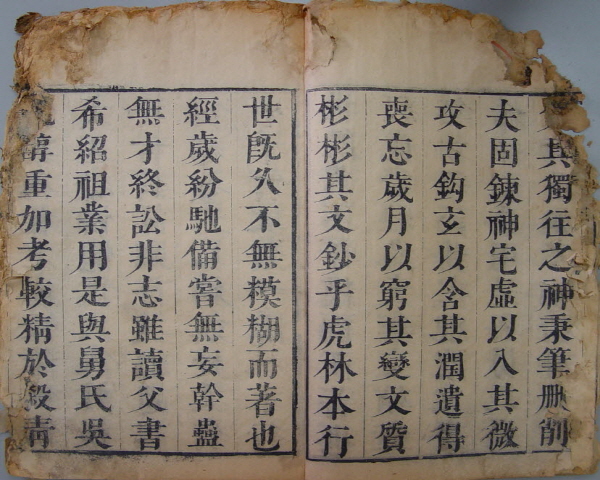 其獨往之神秉筆刪削
夫固鍊神宅虛以入其微
攻古鈎玄以含其潤遺得
喪忘歲月以窮其變文質
彬彬其文鈔乎虎林本行
世旣久不無模糊而著也
經歲紛馳備嘗無妄幹蠱
無才終訟非志雖讀父書
希紹祖業用是與舅氏吳
重加考較精於殺青